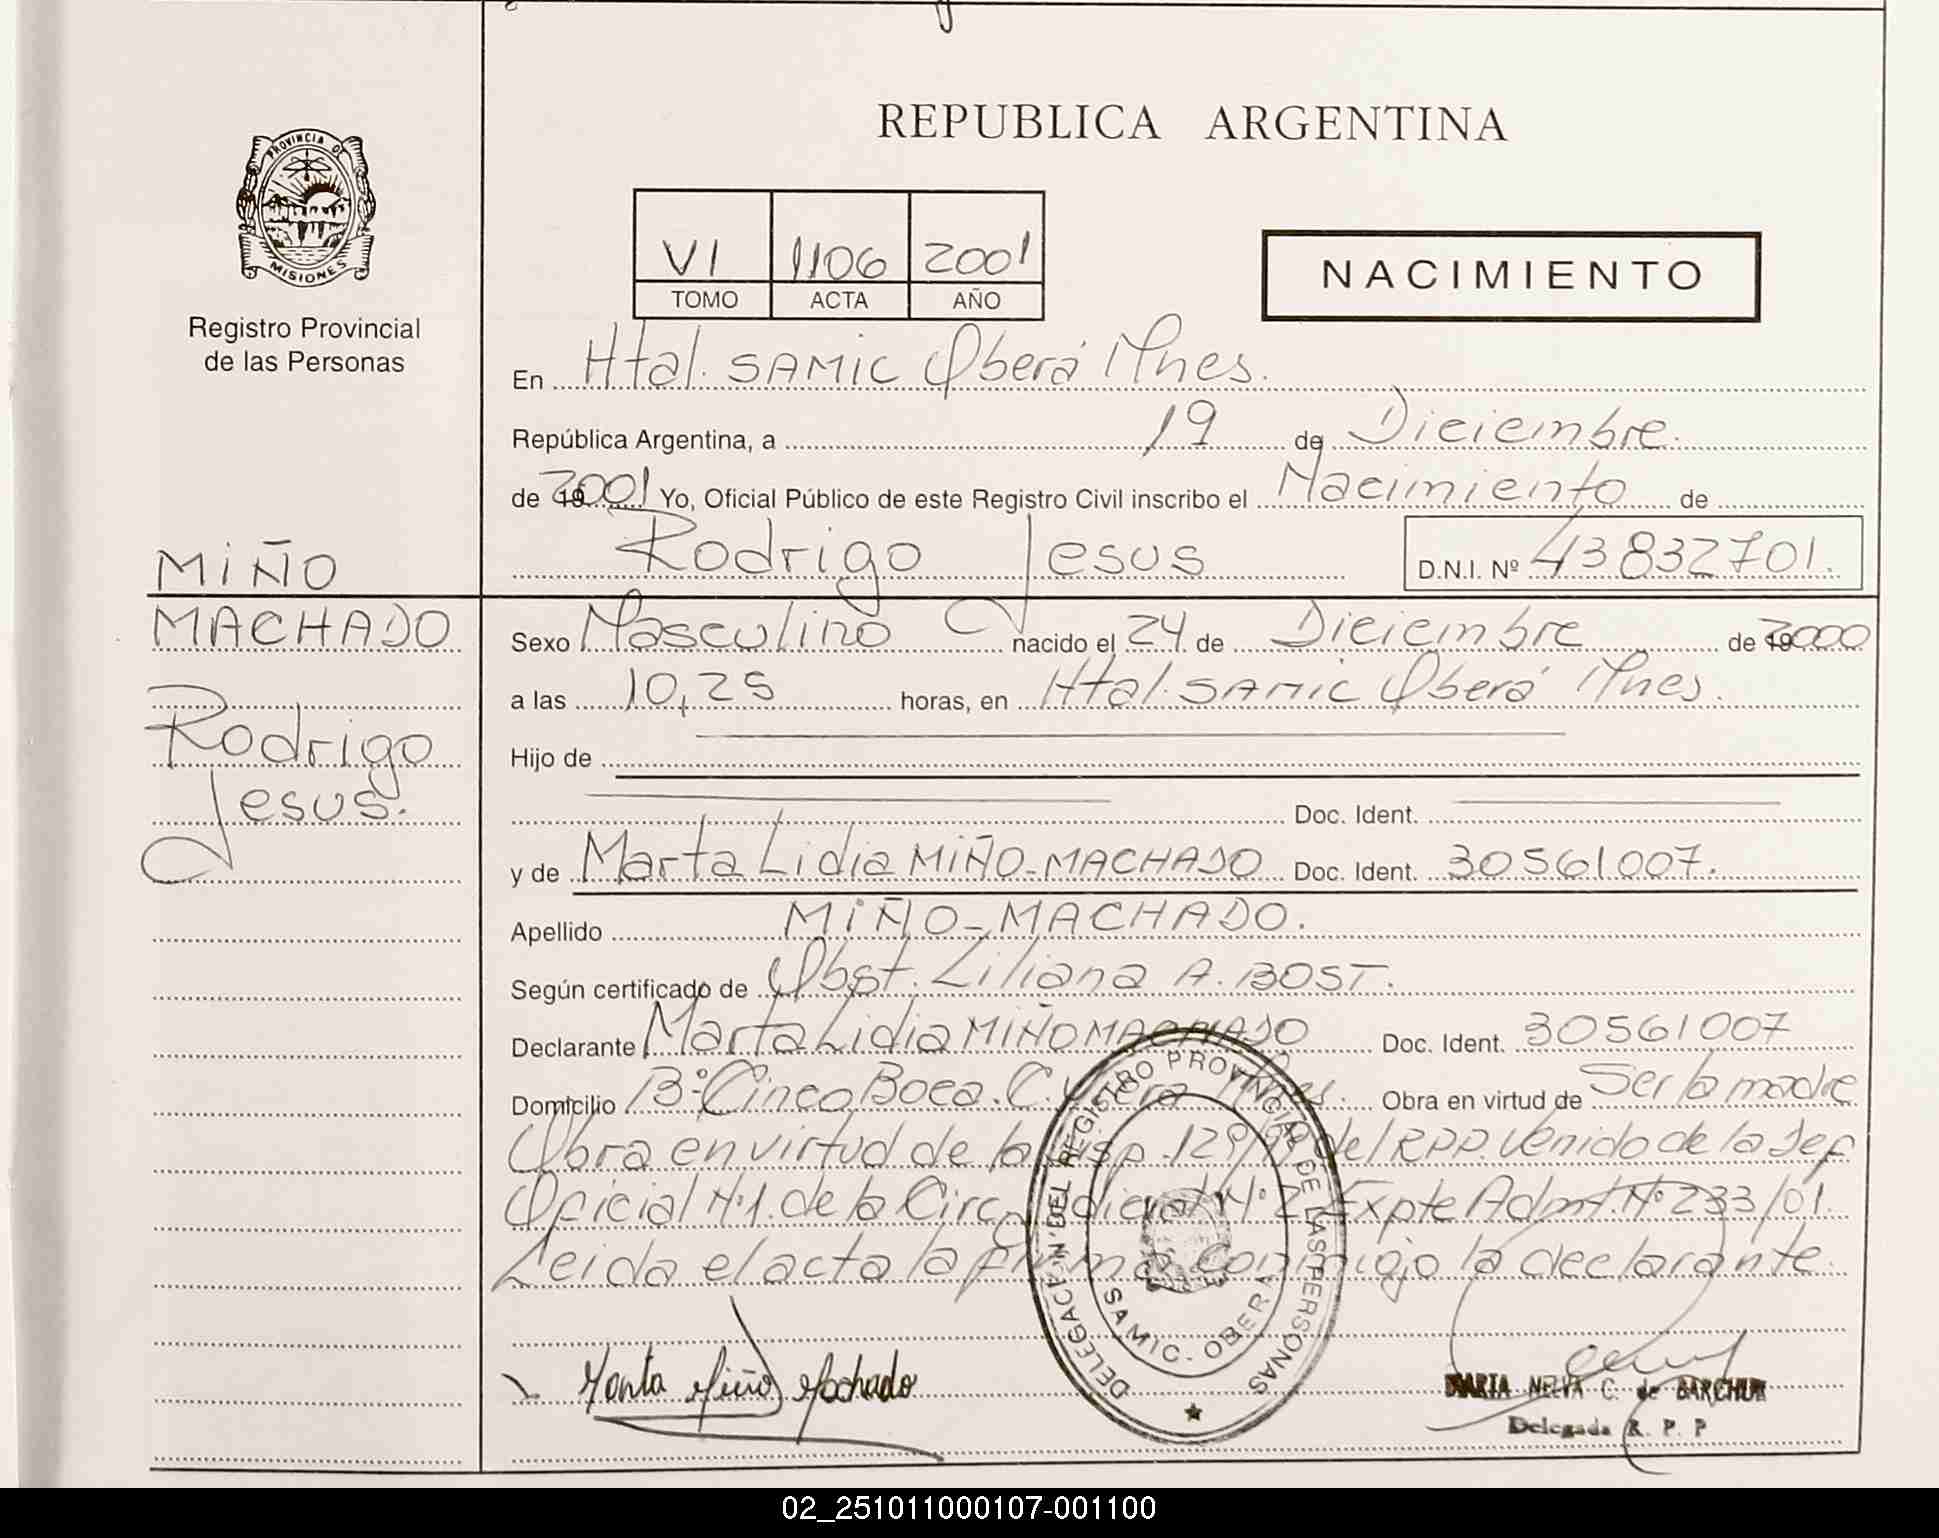 REPUBLICA ARGENTINA
PROVINCIA DE
MISIONES
Registro Provincial
de las Personas
VI 1106 2001
TOMO ACTA AÑO
NACIMIENTO
En Htal. SAMIC Oberá Mnes.
República Argentina, a 19 de Diciembre.
de 192001 Yo, Oficial Público de este Registro Civil inscribo el Nacimiento de
Rodrigo Jesus D.N.I. Nº 43832701.
MIÑO
MACHADO
Rodrigo
Jesus.
Sexo Masculino nacido el 24 de Diciembre de 192000
a las 10,25 horas, en Htal. SAMIC Oberá Mnes.
Hijo de
Doc. Ident.
y de Marta Lidia MIÑO-MACHADO Doc. Ident. 30561007.
Apellido MIÑO-MACHADO.
Según certificado de Obst. Liliana A. BOST.
Declarante Marta Lidia MIÑO MACHADO Doc. Ident. 30561007
Domicilio Bº Cinco Boca. C. Mnes. Obra en virtud de Ser la madre
Obra en virtud de la Disp. 129/99 del RPP. Venido de la Def
Oficial Nº1. de la Circ. Nº 2 Expte Admt. Nº 233/01.
Leida el acta la firma conmigo la declarante.
DELEGAC. Nª. DEL REGISTRO PROVINCIAL DE LAS PERSONAS
SAMIC - OBERA
Marta Miño Machado
MARIA NELVA C. de BARCHUK
Delegada R. P. P
02_251011000107-001100